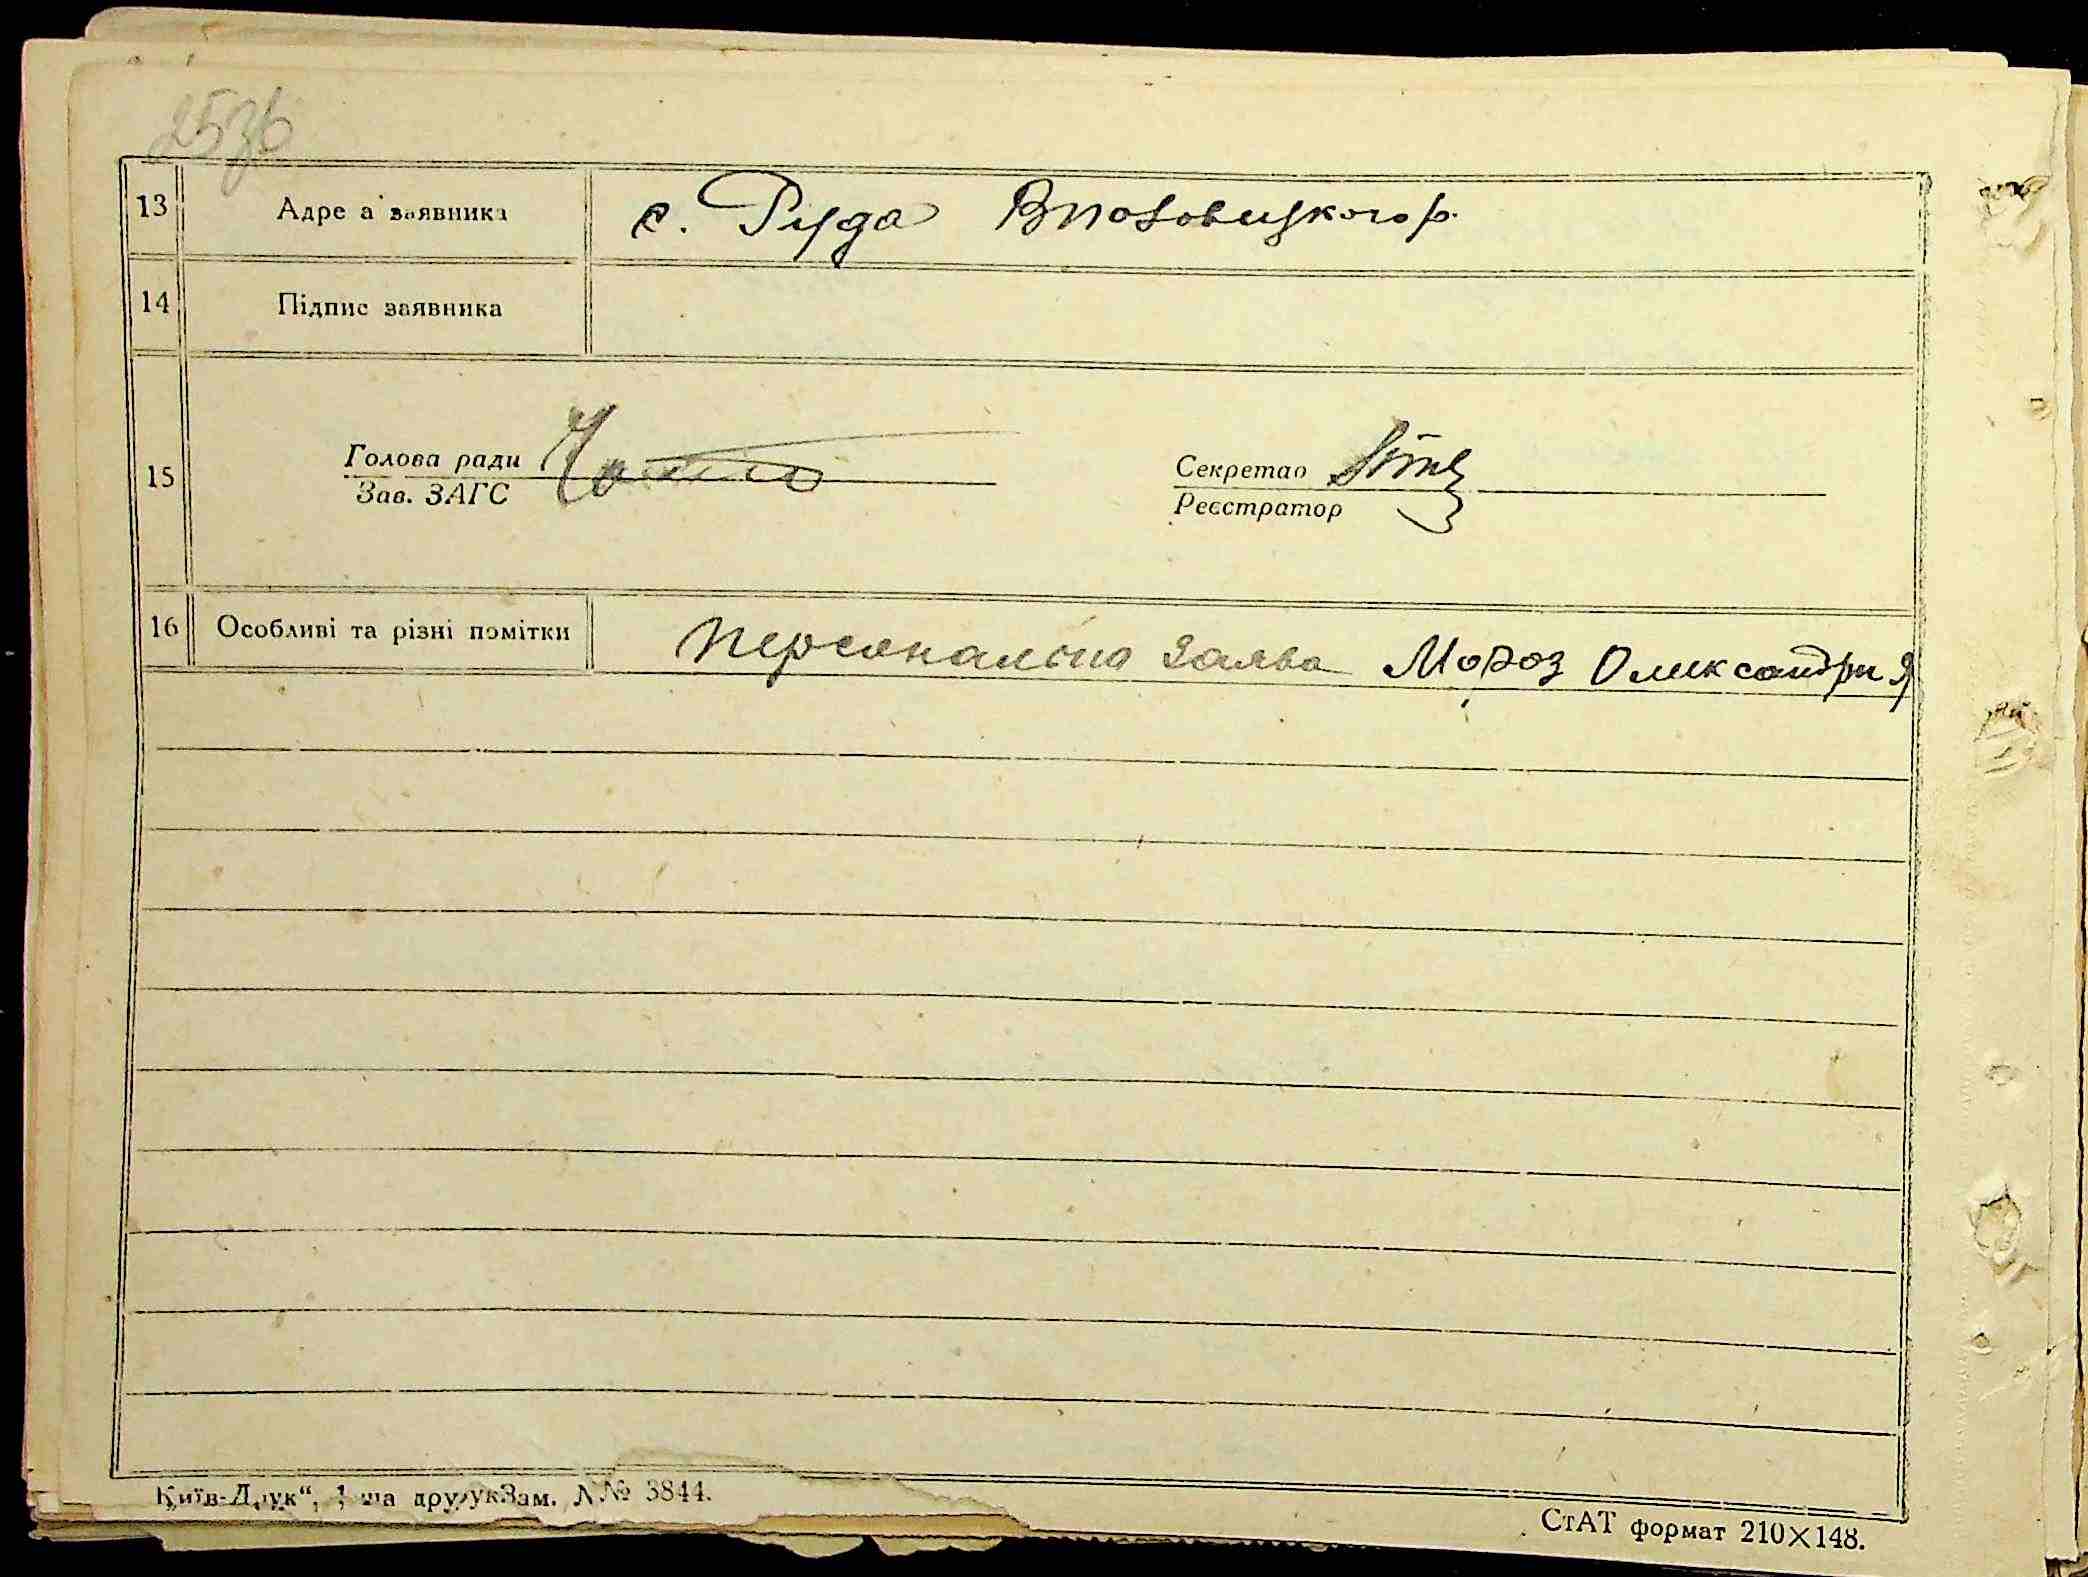 25зв
13 Адре а заявника с. Руда Вполовецького р.
14 Підпис заявника
15 Голова ради Секретар
Зав. ЗАГС Реєстратор
16 Особливі та різні помітки Персональна заява Мороз Оликсандри Я
Київ-Друк“, 1 ша друк Зам. № 3844.
СтАТ формат 210×148.